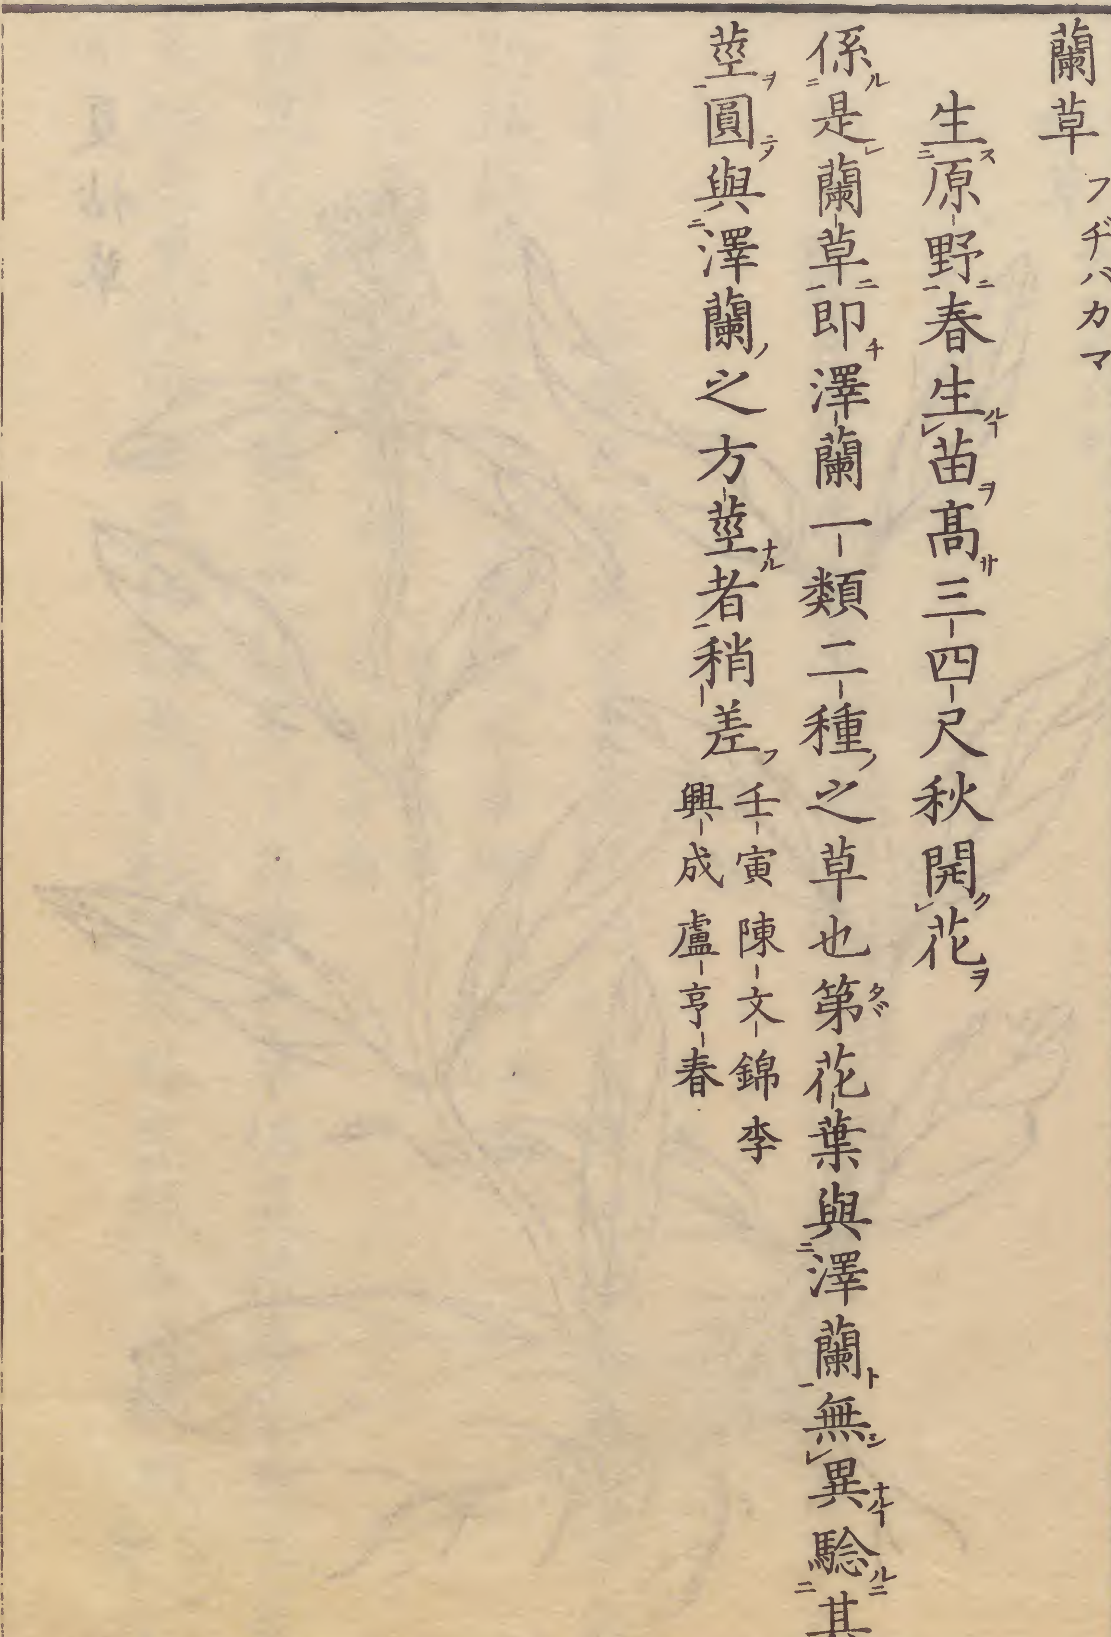 蘭草 フヂバカマ
生原野春生苗髙三四尺秋開花
係是蘭草即澤蘭一類二種之草也第花葉與澤蘭無異驗其
莖圓與澤蘭之方莖者稍差 壬寅 陳文錦 李
興成 盧亨春